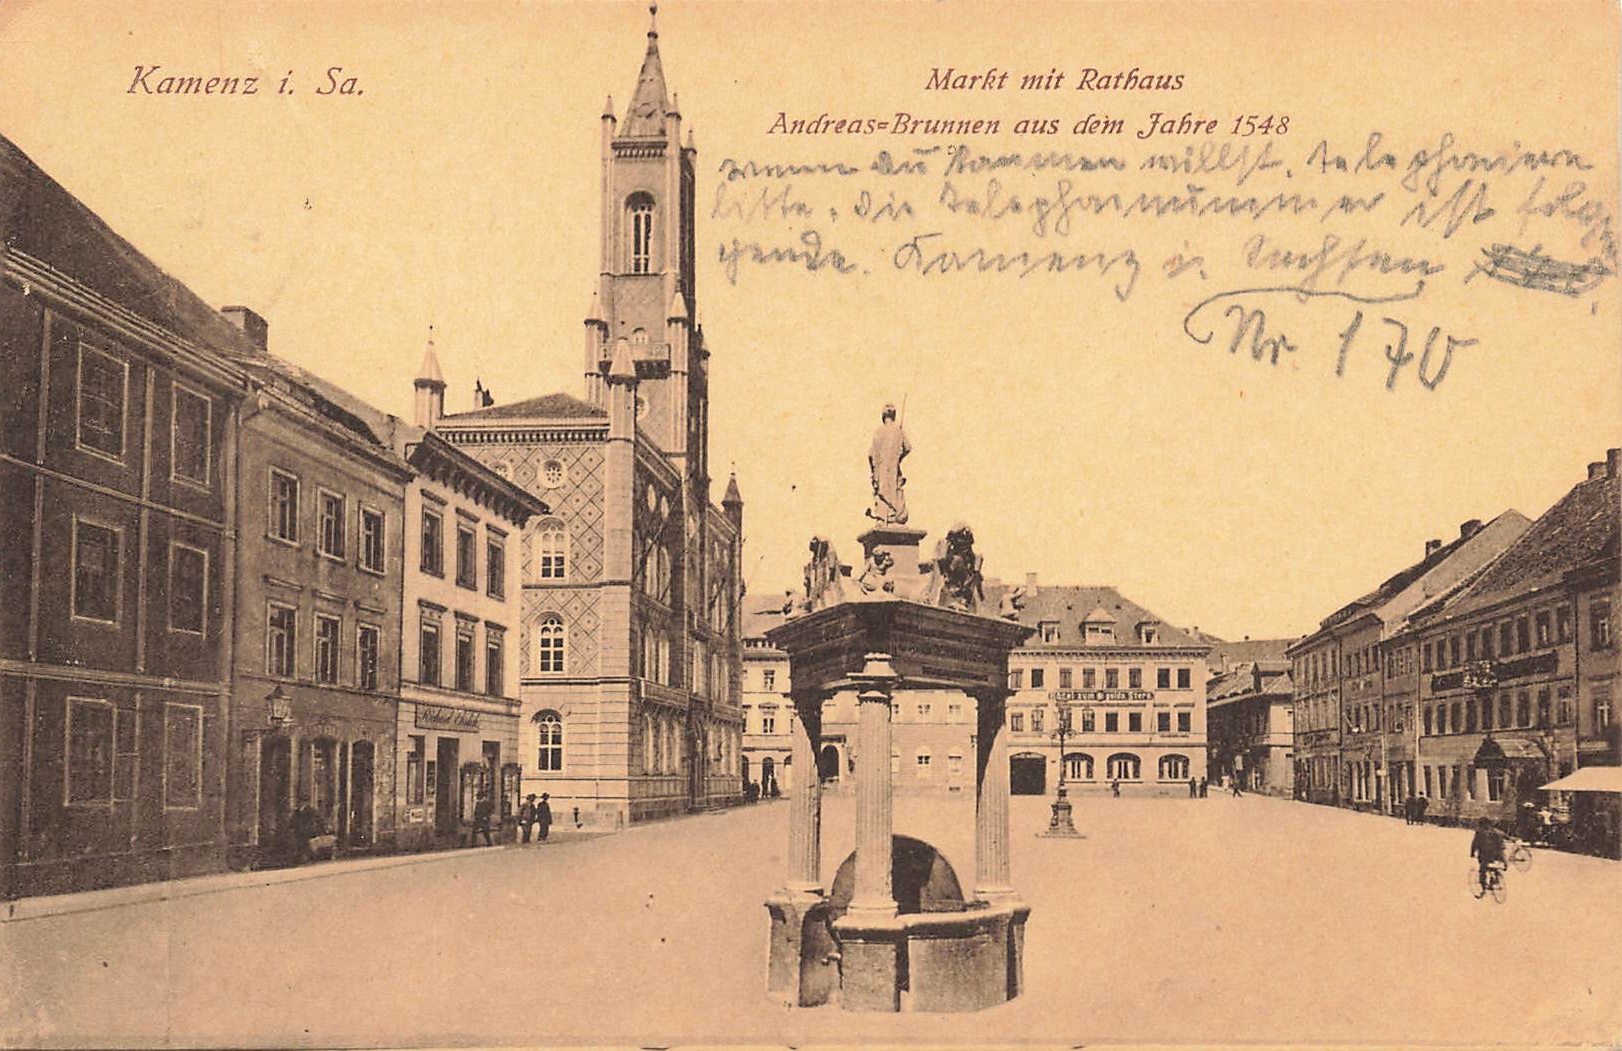 Kamenz i. Sa.
Markt mit Rathaus
Andreas=Brunnen aus dem Jahre 1548
wenn du kommen willst, telephoniere
bitte, die Telephonnummer ist folg
gende. Kamenz i. Sachsen
Nr. 170
Hotel zum goldn. Stern.
Richard